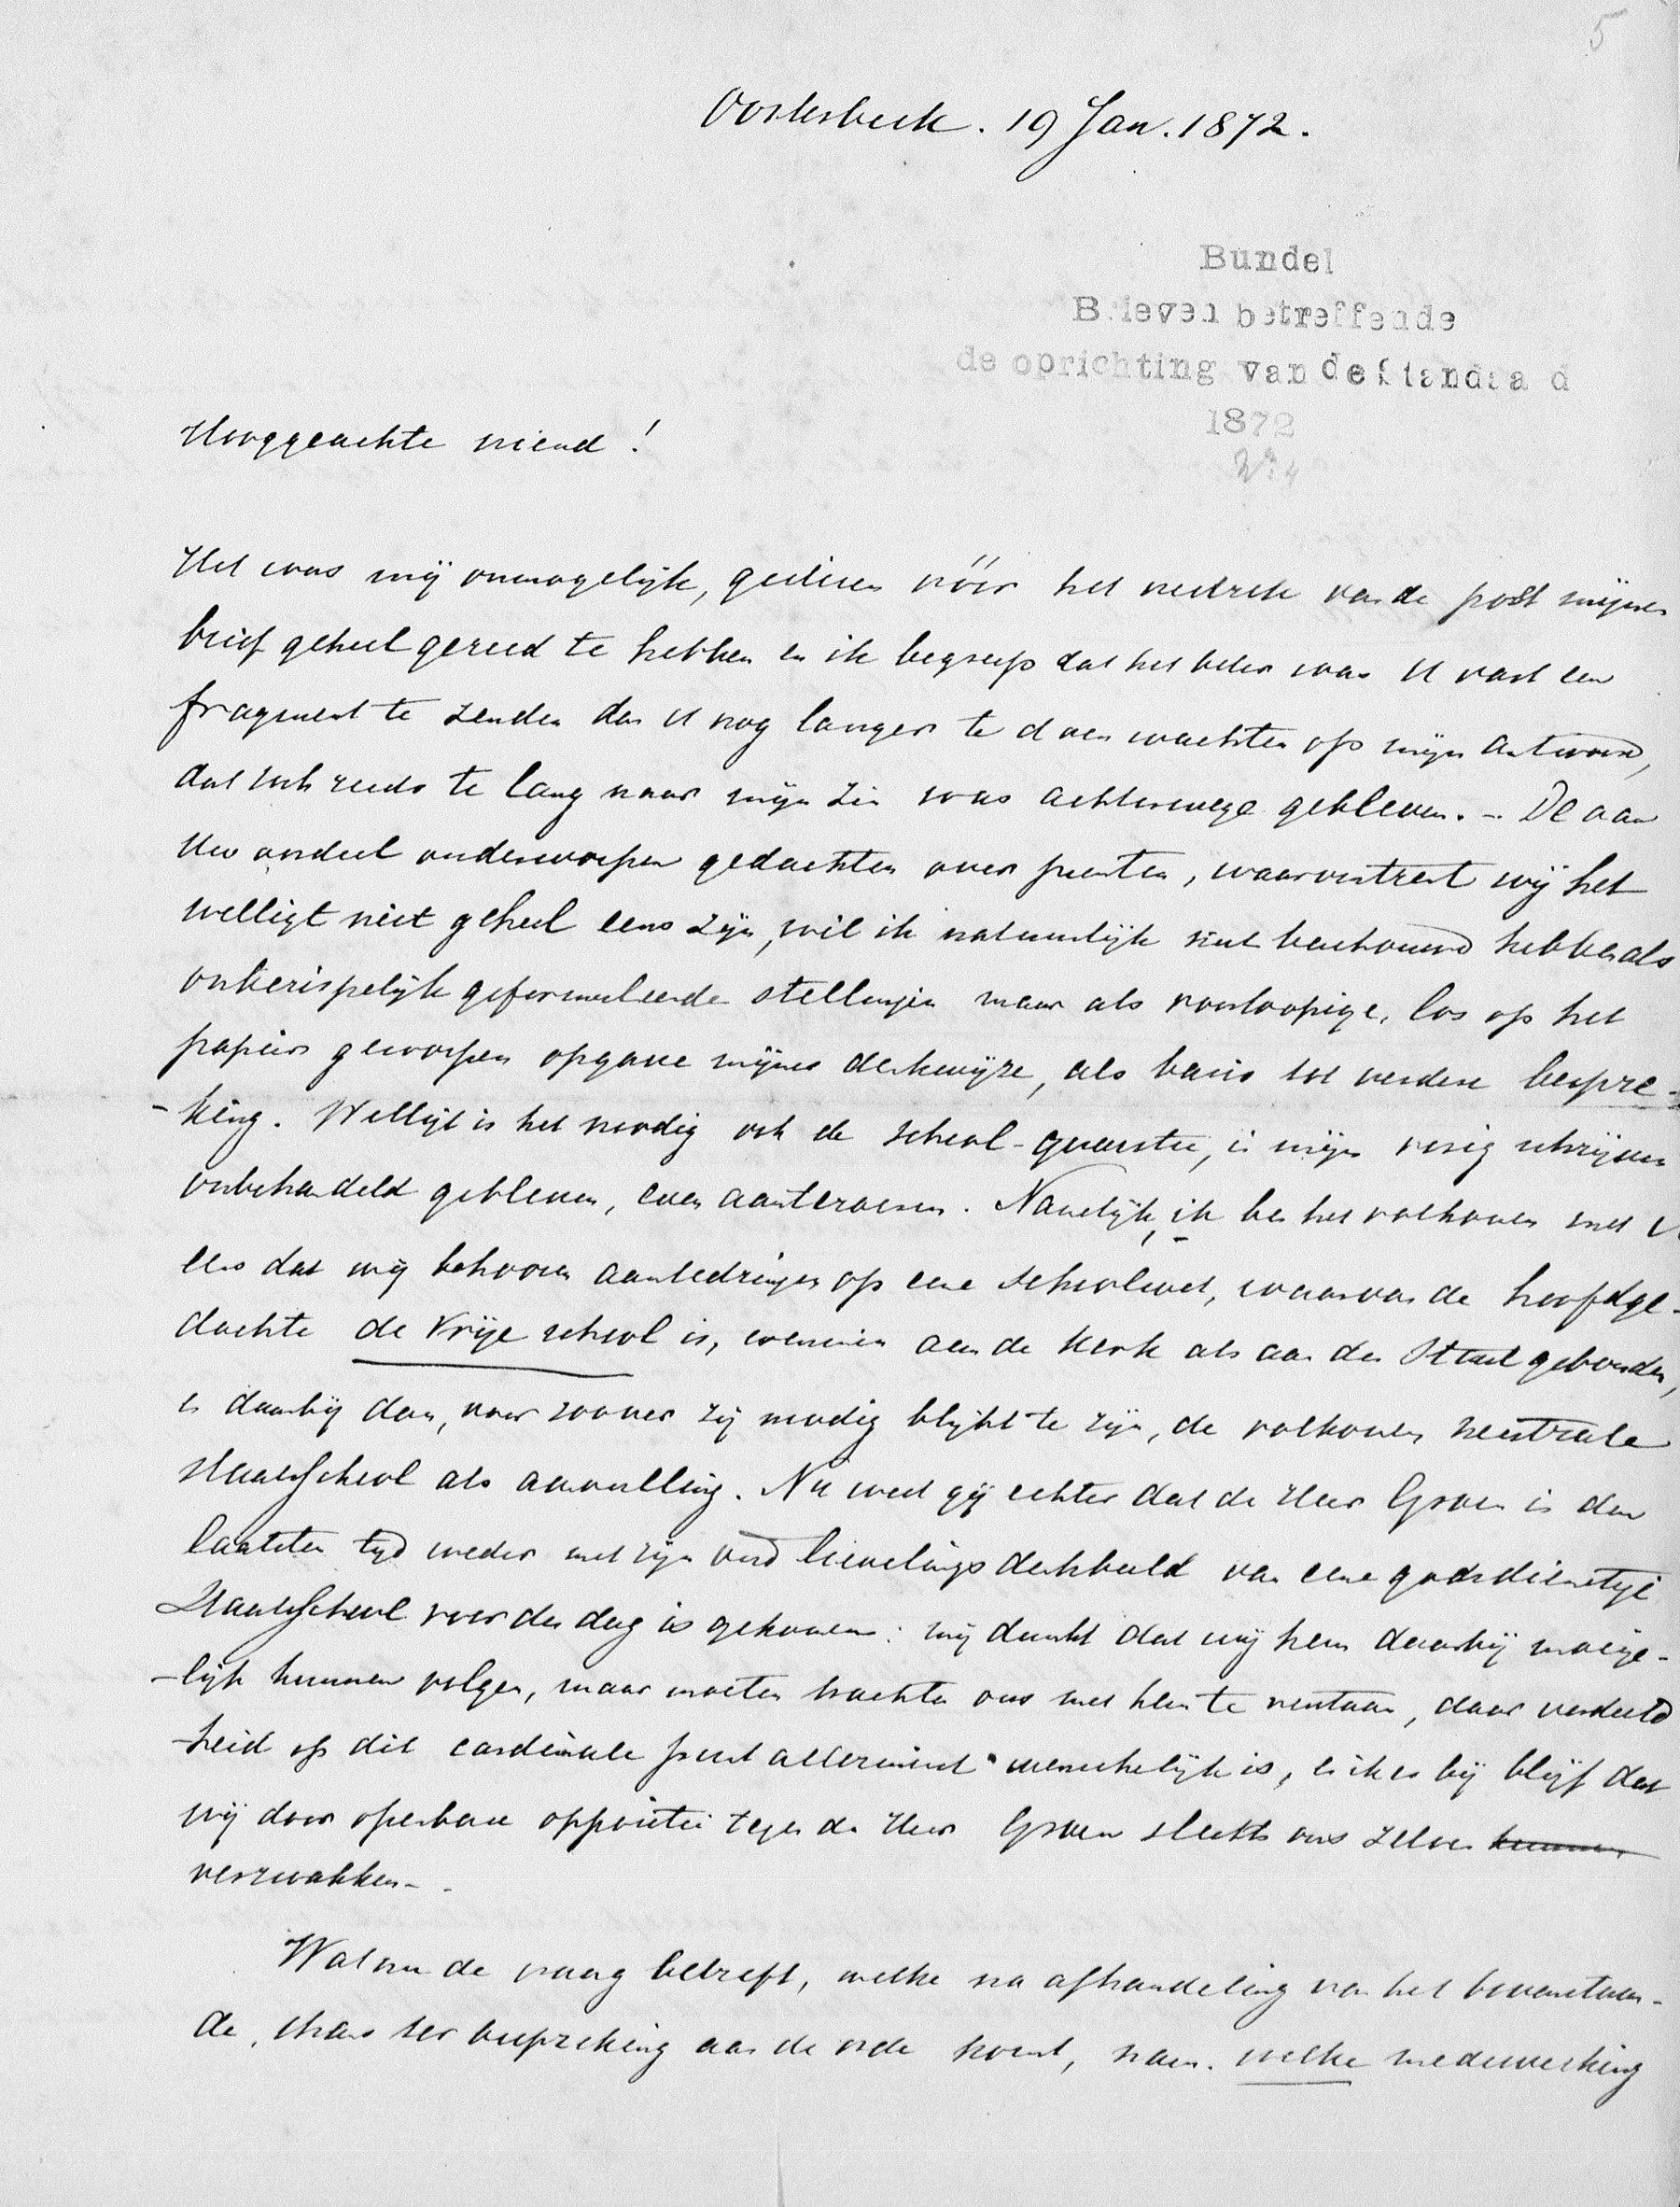 5
Oosterbeek. 19 Jan. 1872.
Bundel
Brieven betreffende
de oprichting van de Standaa d
1872
No. 4
Hooggeachte vriend!
Het was mij onmogelijk, gisteren vóór het vertrek van de post mijnen
brief geheel gereed te hebben en ik begreep dat het beter was U vast een
fragment te zenden dan U nog langer te doen wachten op mijn antwoord,
dat toch reeds te lang naar mijn zin was achterwege gebleven. - De aan
Uw oordeel onderworpen gedachten over punten, waaromtrent wij het
welligt niet geheel eens zijn, wil ik natuurlijk niet beschouwd hebben als
onberispelijk geformuleerde stellingen maar als voorloopige, los op het
papier geworpen opgave mijner denkwijze, als basis tot verdere bespre-
-king. Welligt is het noodig ook de school-quaestie, in mijn vorig schrijven
onbehandeld gebleven, even aanteroeren. Namelijk, ik ben het volkomen met U
eens dat wij behooren aantedringen op eene schoolwet, waarvan de hoofdge-
dachte de vrije school is, evenmin aan de Kerk als aan den Staat gebonden,
en daarbij dan, voor zoover zij noodig blijkt te zijn, de volkomen neutrale
staatsschool als aanvulling. Nu weet gij echter dat de Heer Groen in den
laatsten tijd weder met zijn oud lievelingsdenkbeeld van eene godsdienstige
Staatsschool voor den dag is gekomen: mij dunkt dat wij hem daarbij moeije-
-lijk kunnen volgen, maar moeten trachten ons met hem te verstaan, daar verdeeld
-heid op dit cardinale punt allerminst wenschelijk is, en ik er bij blijf dat
wij door openbare oppositie tegen den Heer Groen slechts ons zelven kunnen
verzwakken. -
Wat nu de vraag betreft, welke na afhandeling van het bovenstaan-
de, thans ter bespreking aan de orde komt, nam. welke medewerking